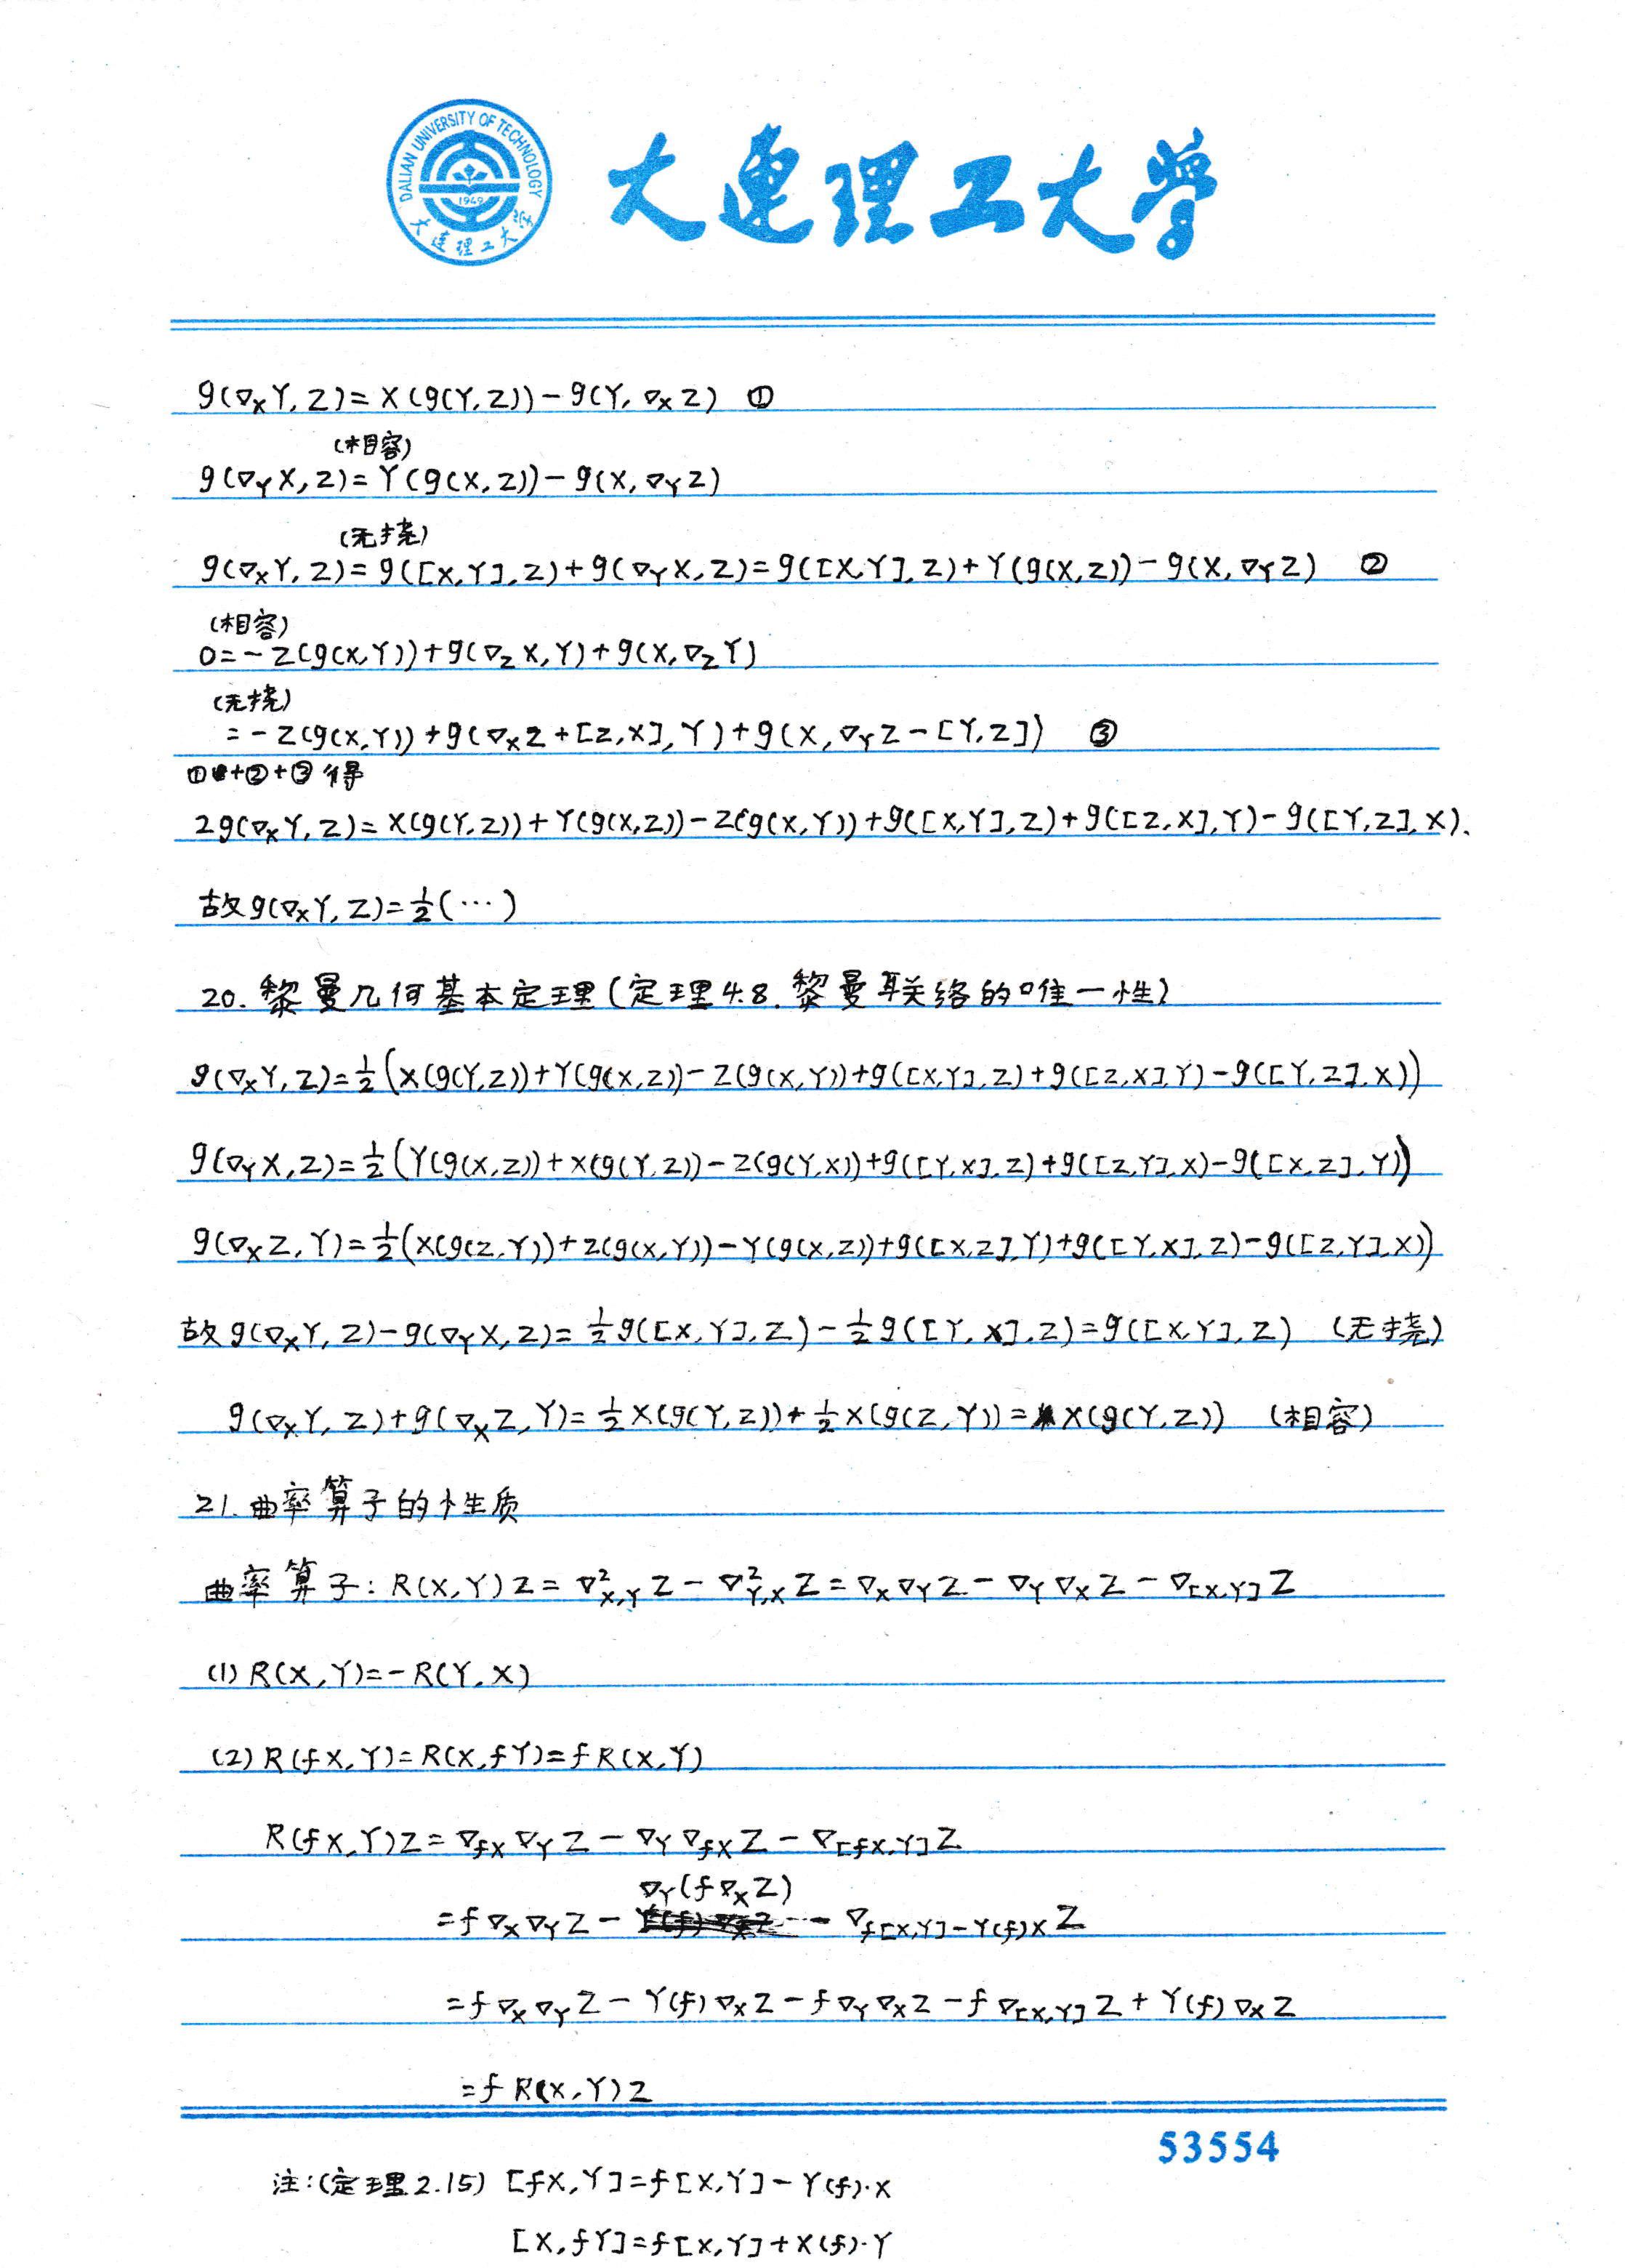 DALIAN UNIVERSITY OF TECHNOLOGY
1949
大连理工大学
大连理工大学
g(∇_X Y, Z) = X(g(Y,Z)) − g(Y, ∇_X Z) ①
(相容)
g(∇_Y X, Z) = Y(g(X,Z)) − g(X, ∇_Y Z)
(无挠)
g(∇_X Y, Z) = g([X,Y], Z) + g(∇_Y X, Z) = g([X,Y], Z) + Y(g(X,Z)) − g(X, ∇_Y Z) ②
(相容)
0 = −Z(g(X,Y)) + g(∇_Z X, Y) + g(X, ∇_Z Y)
(无挠)
= −Z(g(X,Y)) + g(∇_X Z + [Z,X], Y) + g(X, ∇_Y Z − [Y,Z]) ③
①+②+③得
2g(∇_X Y, Z) = X(g(Y,Z)) + Y(g(X,Z)) − Z(g(X,Y)) + g([X,Y], Z) + g([Z,X], Y) − g([Y,Z], X).
故 g(∇_X Y, Z) = ½(⋯)
20. 黎曼几何基本定理(定理4.8. 黎曼联络的唯一性)
g(∇_X Y, Z) = ½(X(g(Y,Z)) + Y(g(X,Z)) − Z(g(X,Y)) + g([X,Y], Z) + g([Z,X], Y) − g([Y,Z], X))
g(∇_Y X, Z) = ½(Y(g(X,Z)) + X(g(Y,Z)) − Z(g(Y,X)) + g([Y,X], Z) + g([Z,Y], X) − g([X,Z], Y))
g(∇_X Z, Y) = ½(X(g(Z,Y)) + Z(g(X,Y)) − Y(g(X,Z)) + g([X,Z], Y) + g([Y,X], Z) − g([Z,Y], X))
故 g(∇_X Y, Z) − g(∇_Y X, Z) = ½g([X,Y], Z) − ½g([Y,X], Z) = g([X,Y], Z) (无挠)
g(∇_X Y, Z) + g(∇_X Z, Y) = ½X(g(Y,Z)) + ½X(g(Z,Y)) = X(g(Y,Z)) (相容)
21. 曲率算子的性质
曲率算子: R(X,Y)Z = ∇²_{X,Y} Z − ∇²_{Y,X} Z = ∇_X ∇_Y Z − ∇_Y ∇_X Z − ∇_{[X,Y]} Z
(1) R(X,Y) = −R(Y,X)
(2) R(fX,Y) = R(X,fY) = fR(X,Y)
R(fX,Y)Z = ∇_{fX} ∇_Y Z − ∇_Y ∇_{fX} Z − ∇_{[fX,Y]} Z
= f∇_X ∇_Y Z − ∇_Y(f∇_X Z) − ∇_{f[X,Y]−Y(f)X} Z
= f∇_X ∇_Y Z − Y(f)∇_X Z − f∇_Y ∇_X Z − f∇_{[X,Y]} Z + Y(f)∇_X Z
= fR(X,Y)Z
53554
注:(定理2.15) [fX,Y] = f[X,Y] − Y(f)·X
[X,fY] = f[X,Y] + X(f)·Y